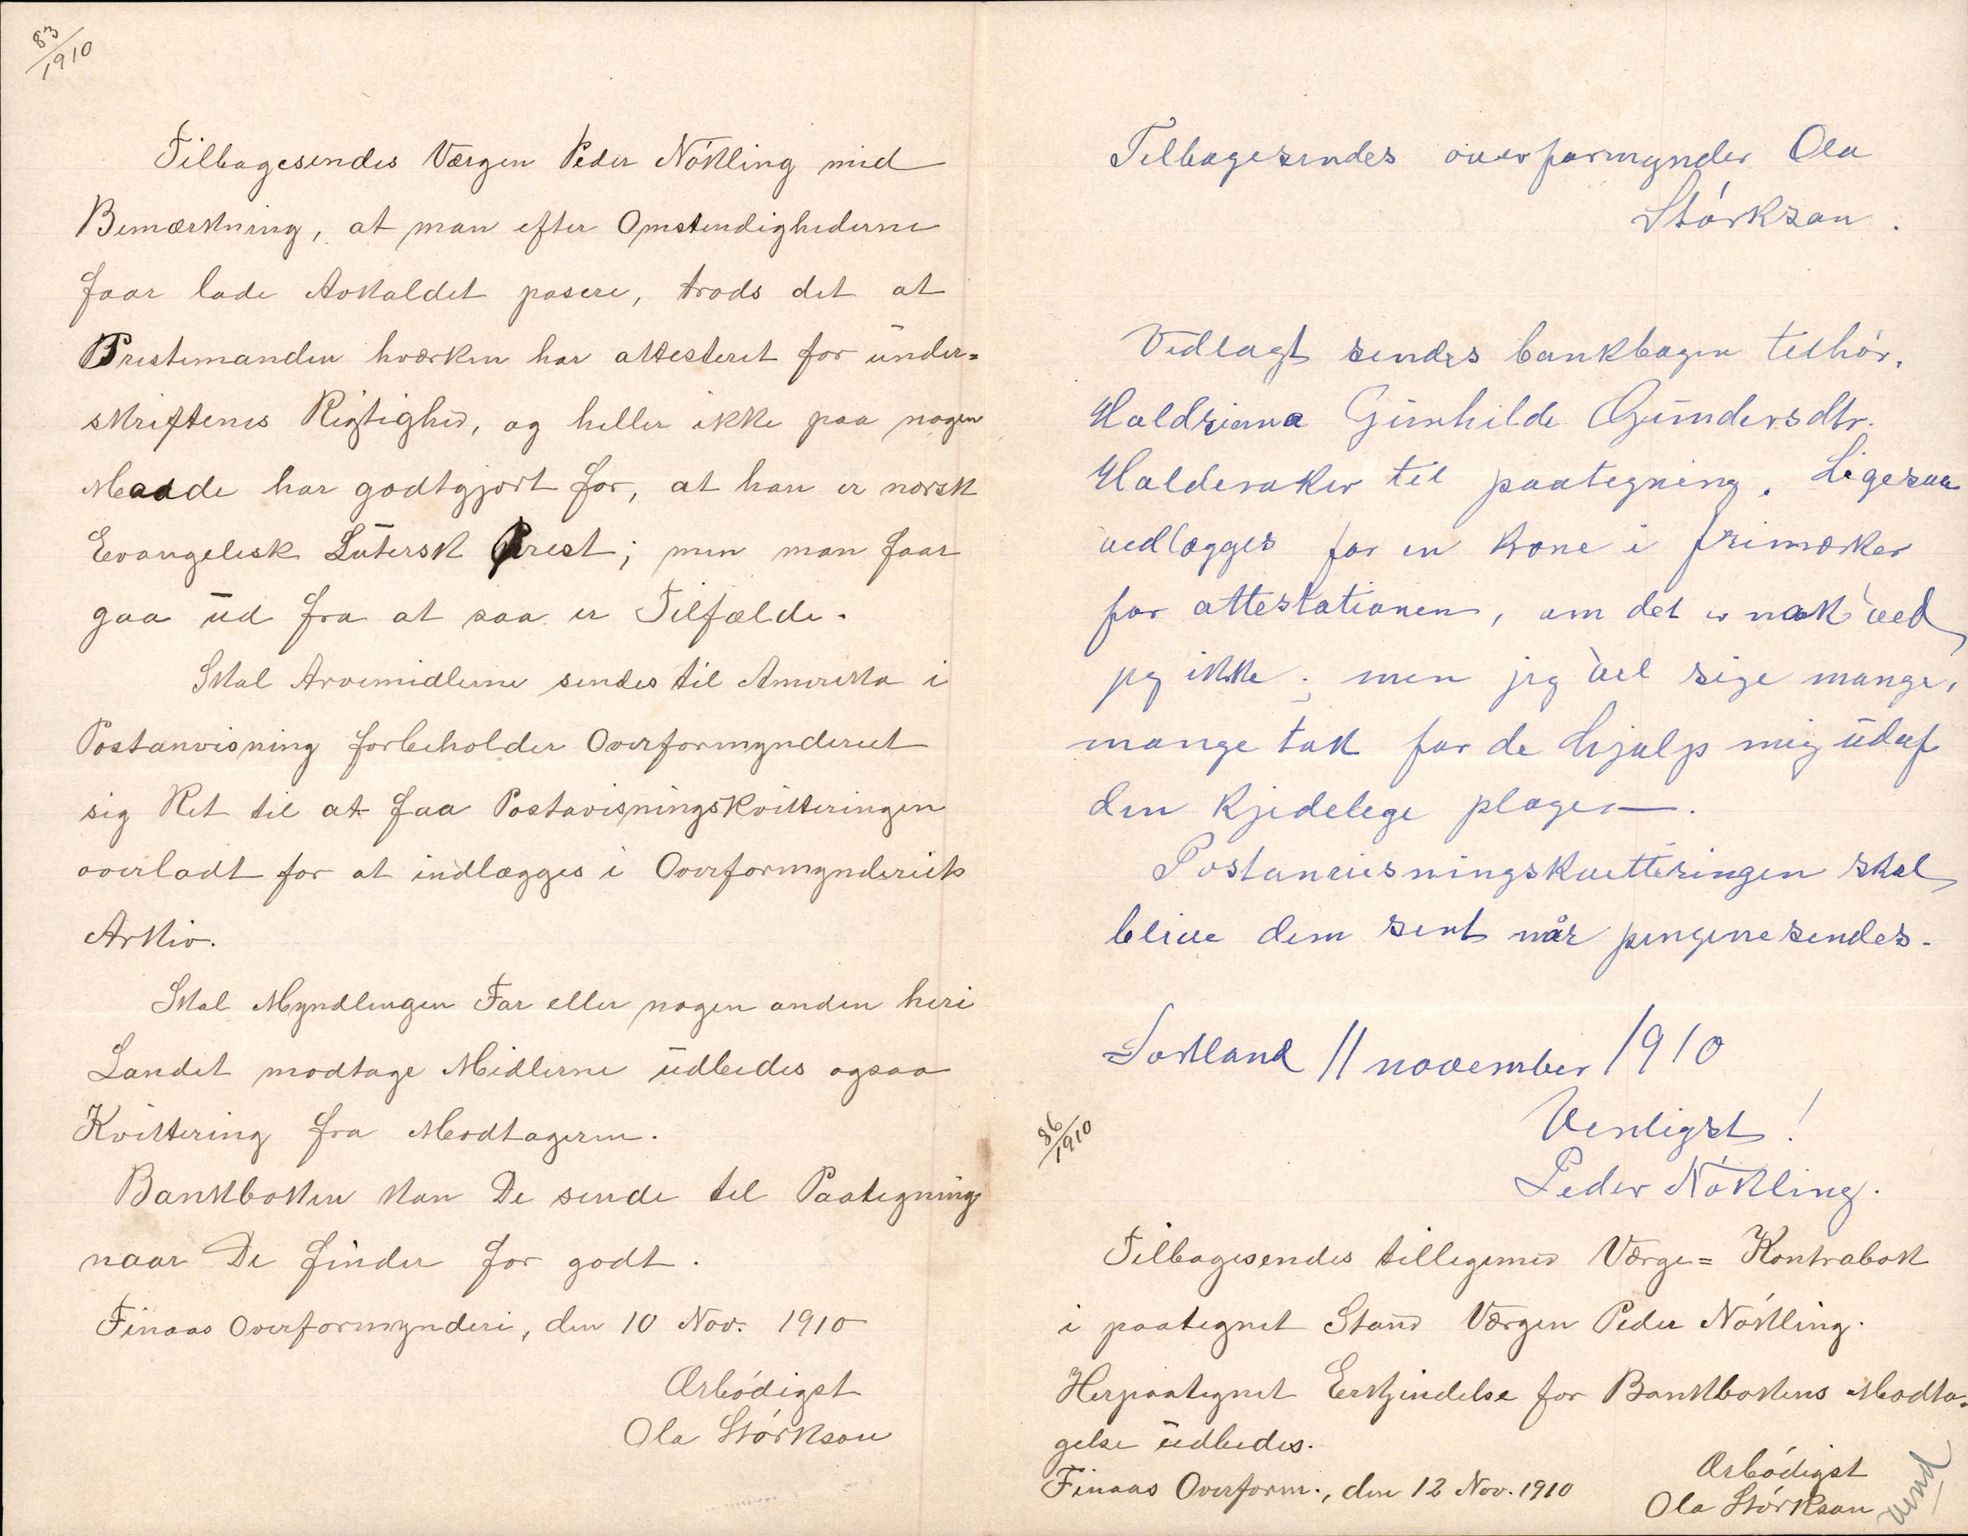 83/1910
Tilbagesendes Værgen Peder Nökling med
Bemærkning, at man efter Omstendighederne
faar lade Avkaldet pasere, trods det at
Prestemanden hværken har attesteret for under=
skriftenes Rigtighed, og heller ikke paa nogen
Maade har godtgjort for, at han er norsk
Evangelisk Lutersk Prest; men man faar
gaa ud fra at saa er Tilfælde.
Skal Arvemidlerne sendes til Amerika i
Postanvisning forbeholder Overformynderiet
sig Ret til at faa Postavisningskvitteringen
overladt for at indlægges i Overformynderiets
Arkiv.
Skal Myndlingen Far eller nogen anden heri
Landet modtage Midlerne udbedes ogsaa
Kvittering fra Modtageren.
Bankboken kan De sende til Paategning
naar De finder for godt.
Finaas Overformynderi, den 10 Nov. 1910
Ærbödigst
Ola Störkson
Tilbagesendes overformynder Ola
Störkson.
Vedlagt sendes bankbogen tilhör.
Haldriana Gunhilde Gundersdtr.
Halderaker til paategning. Ligesaa
vedlægges for en krone i frimærker
for attestationen, om det er nok ved
jeg ikke; men jeg vil sige mange,
mange tak for de hjalp mig udaf
den kjedelege plagen.
Postanvisningskvitteringen skal
blive dem sent når pengene sendes.
Sortland 11 november 1910
Venligst!
Peder Nökling.
86/1910
Tilbagesendes tilligemed Værge= Kontrabok
i paategnet Stand Værgen Peder Nökling.
Herpaategnet Erkjendelse for Bankbokens Modta=
gelse udbedes.
Finaas Overform., den 12 Nov. 1910
Ærbödigst
Ola Störkson
Vend